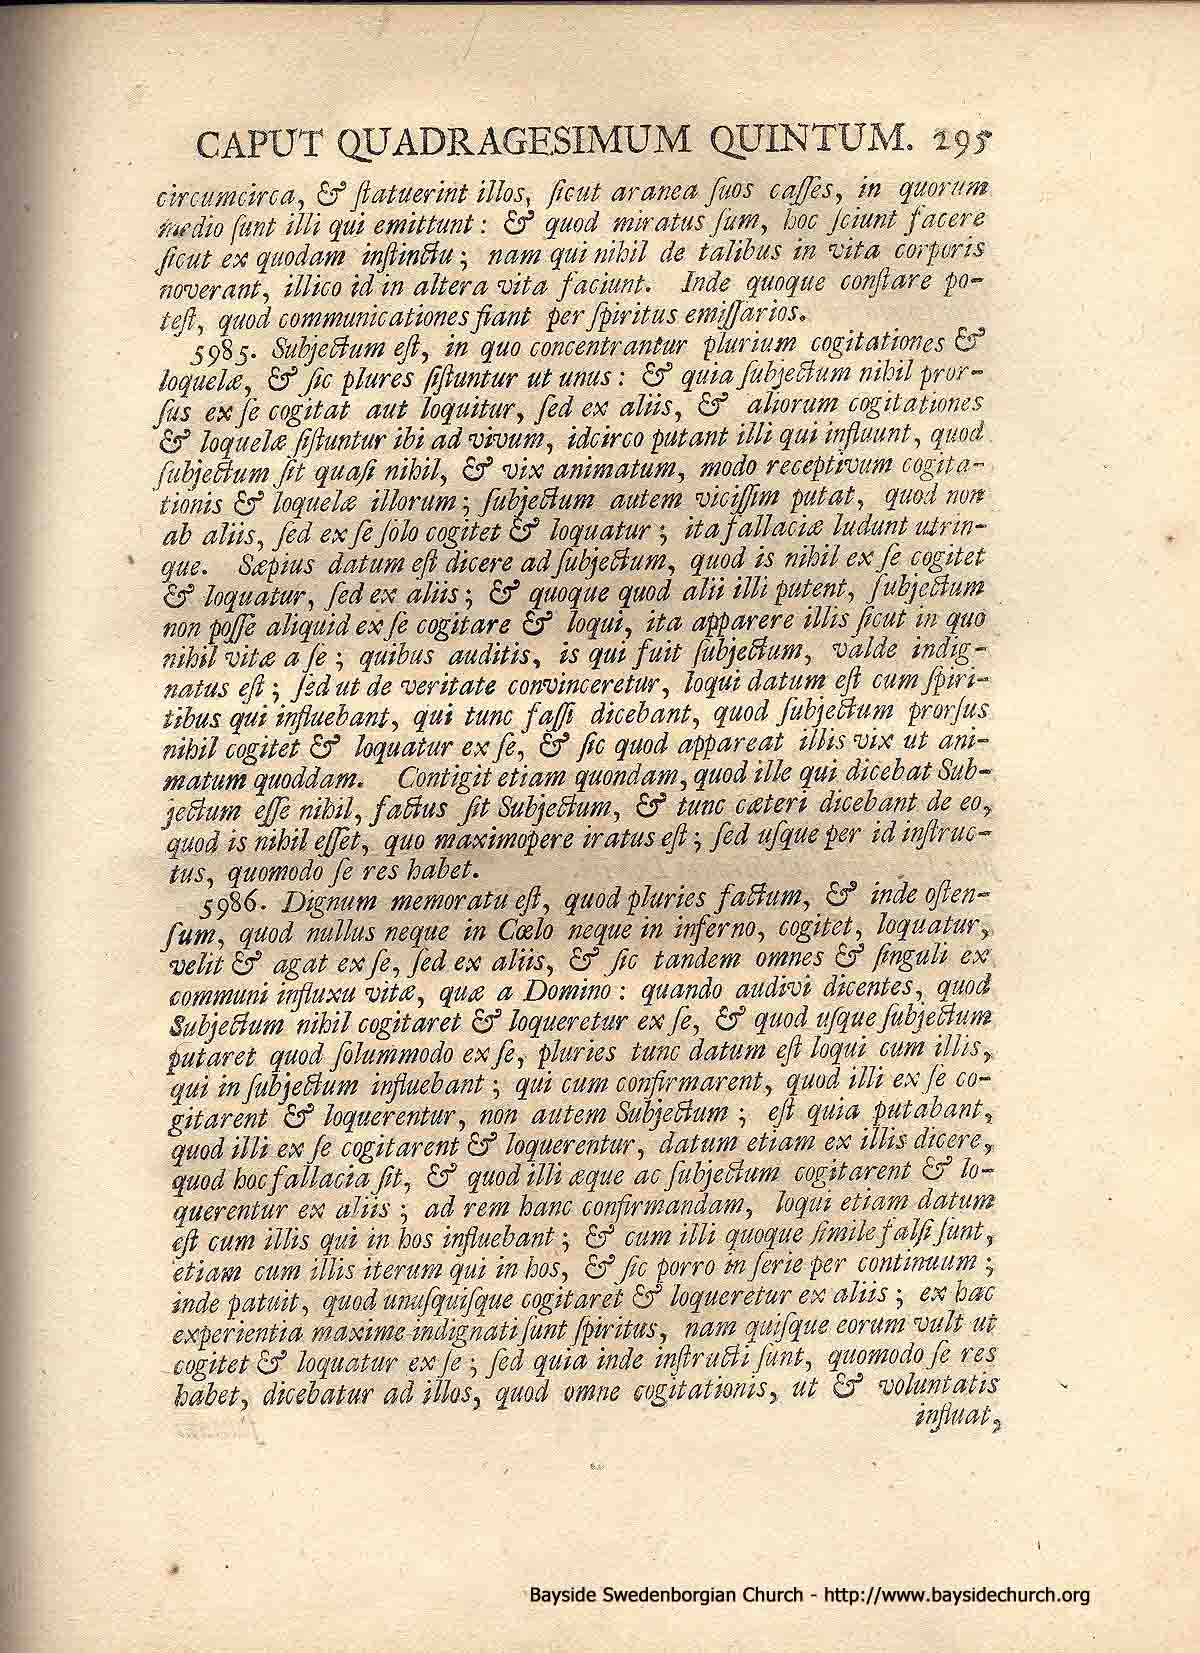 CAPUT QUADRAGESIMUM QUINTUM. 295
circumcirca, & ſtatuerint illos, ſicut aranea ſuos caſſes, in quorum
medio ſunt illi qui emittunt: & quod miratus ſum, hoc ſciunt facere
ſicut ex quodam inſtinctu; nam qui nihil de talibus in vita corporis
noverant, illico id in altera vita faciunt. Inde quoque conſtare po-
teſt, quod communicationes fiant per ſpiritus emiſſarios.
5985. Subjectum eſt, in quo concentrantur plurium cogitationes &
loquelæ, & ſic plures ſiſtuntur ut unus: & quia ſubjectum nihil pror-
ſus ex ſe cogitat aut loquitur, ſed ex aliis, & aliorum cogitationes
& loquelæ ſiſtuntur ibi ad vivum, idcirco putant illi qui influunt, quod
ſubjectum ſit quaſi nihil, & vix animatum, modo receptivum cogita-
tionis & loquelæ illorum; ſubjectum autem viciſſim putat, quod non
ab aliis, ſed ex ſe ſolo cogitet & loquatur; ita fallaciæ ludunt utrin-
que. Sæpius datum eſt dicere ad ſubjectum, quod is nihil ex ſe cogitet
& loquatur, ſed ex aliis; & quoque quod alii illi putent, ſubjectum
non poſſe aliquid ex ſe cogitare & loqui, ita apparere illis ſicut in quo
nihil vitæ a ſe; quibus auditis, is qui fuit ſubjectum, valde indig-
natus eſt; ſed ut de veritate convinceretur, loqui datum eſt cum ſpiri-
tibus qui influebant, qui tunc faſſi dicebant, quod ſubjectum prorſus
nihil cogitet & loquatur ex ſe, & ſic quod appareat illis vix ut ani-
matum quoddam. Contigit etiam quondam, quod ille qui dicebat Sub-
jectum eſſe nihil, factus ſit Subjectum, & tunc cæteri dicebant de eo,
quod is nihil eſſet, quo maximopere iratus eſt; ſed uſque per id inſtruc-
tus, quomodo ſe res habet.
5986. Dignum memoratu eſt, quod pluries factum, & inde oſten-
ſum, quod nullus neque in Cœlo neque in inferno, cogitet, loquatur,
velit & agat ex ſe, ſed ex aliis, & ſic tandem omnes & ſinguli ex
communi influxu vitæ, quæ a Domino: quando audivi dicentes, quod
Subjectum nihil cogitaret & loqueretur ex ſe, & quod uſque ſubjectum
putaret quod ſolummodo ex ſe, pluries tunc datum eſt loqui cum illis,
qui in ſubjectum influebant; qui cum confirmarent, quod illi ex ſe co-
gitarent & loquerentur, non autem Subjectum; eſt quia putabant,
quod illi ex ſe cogitarent & loquerentur, datum etiam ex illis dicere,
quod hoc fallacia ſit, & quod illi æque ac ſubjectum cogitarent & lo-
querentur ex aliis; ad rem hanc confirmandam, loqui etiam datum
eſt cum illis qui in hos influebant; & cum illi quoque ſimile falſi ſunt,
etiam cum illis iterum qui in hos, & ſic porro in ſerie per continuum;
inde patuit, quod unuſquiſque cogitaret & loqueretur ex aliis; ex hac
experientia maxime indignati ſunt ſpiritus, nam quiſque eorum vult ut
cogitet & loquatur ex ſe; ſed quia inde inſtructi ſunt, quomodo ſe res
habet, dicebatur ad illos, quod omne cogitationis, ut & voluntatis
influat,
Bayside Swedenborgian Church - http://www.baysidechurch.org